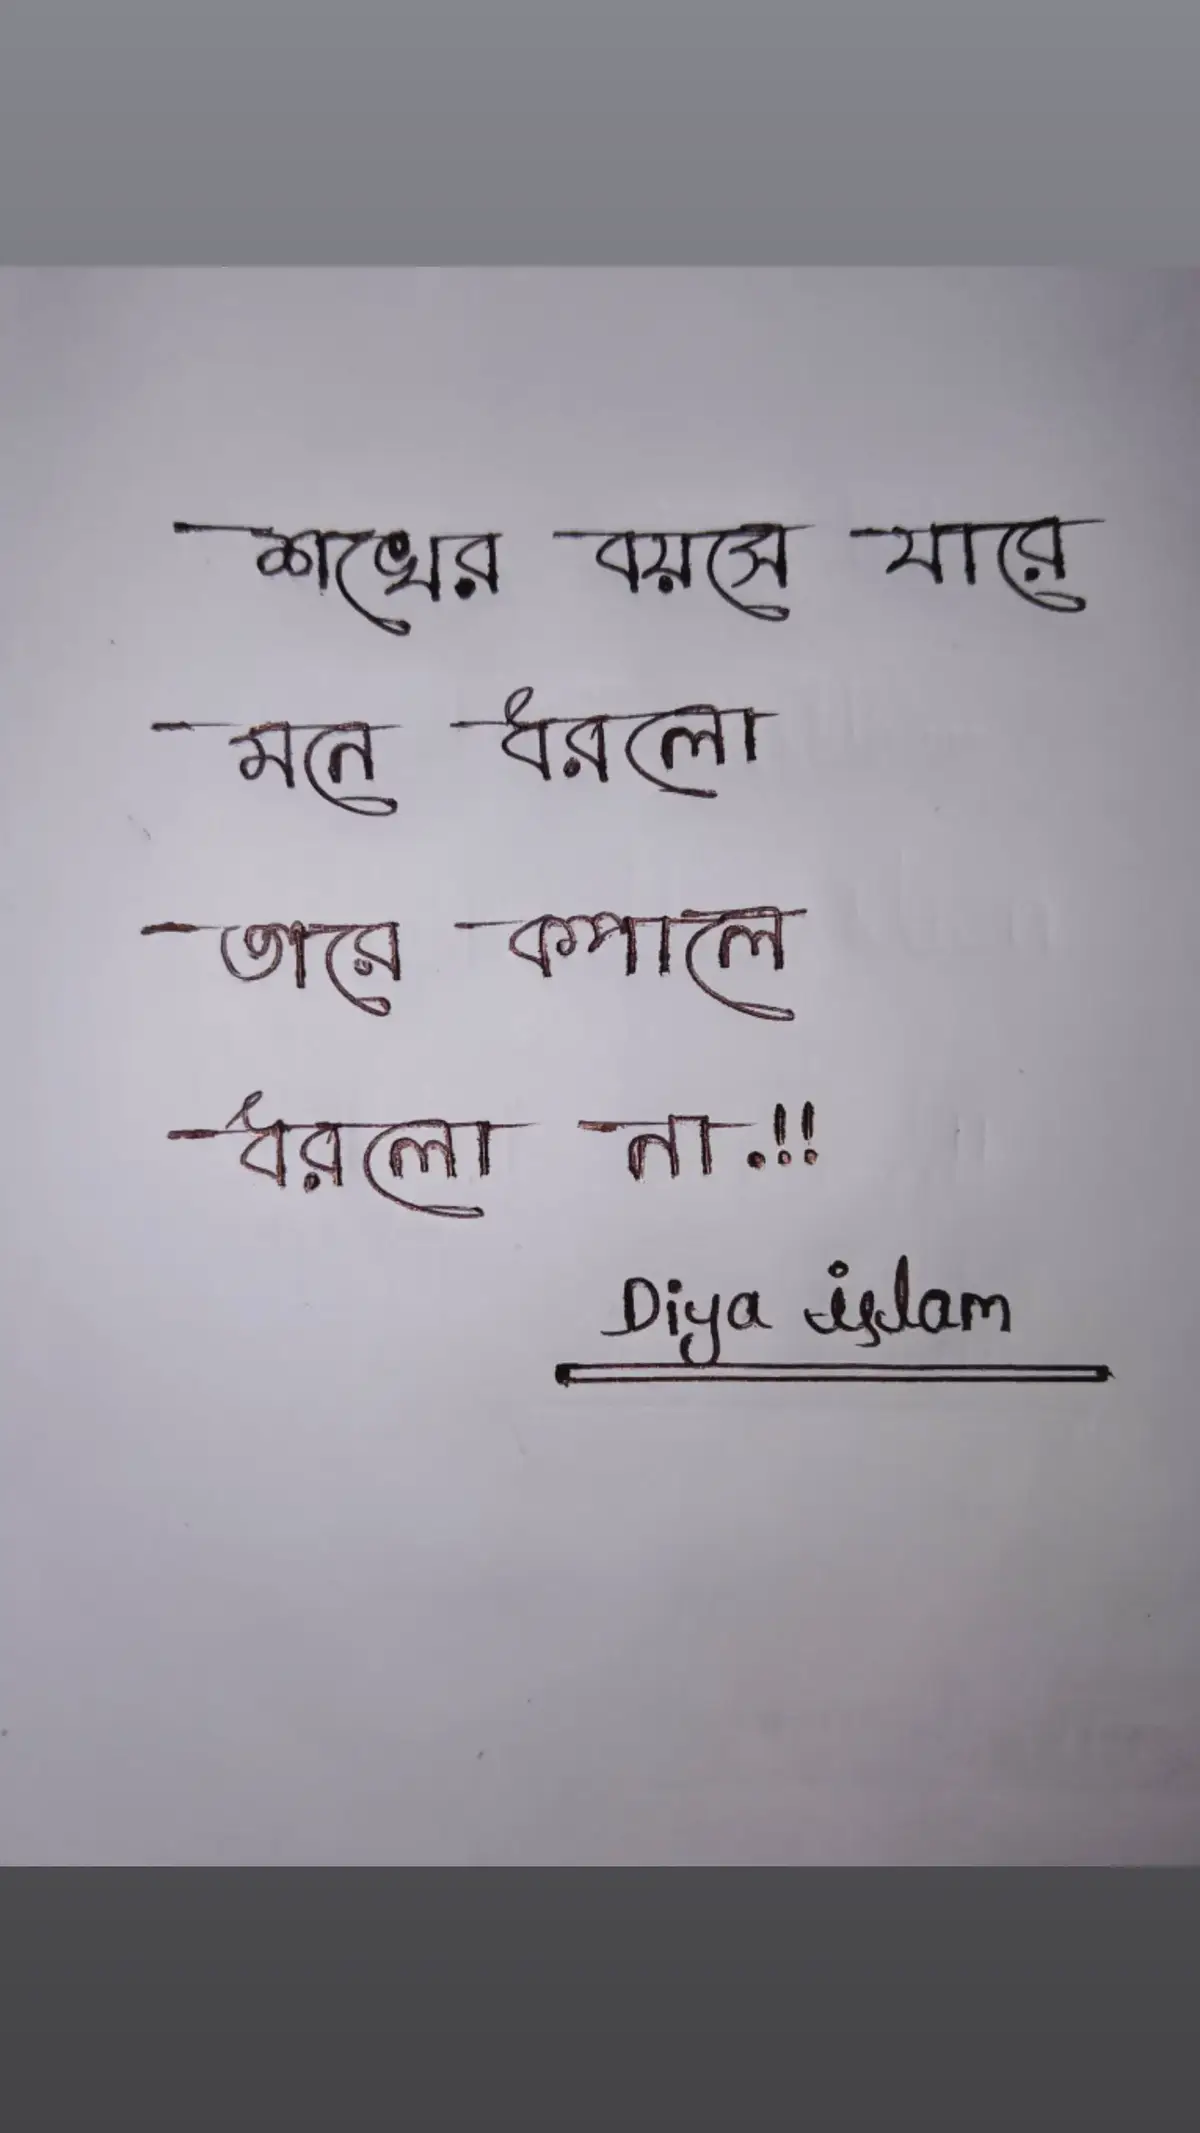 শখের বয়সে যারে
মনে ধরলো
তারে কপালে
ধরলো না.!!
Diya islam